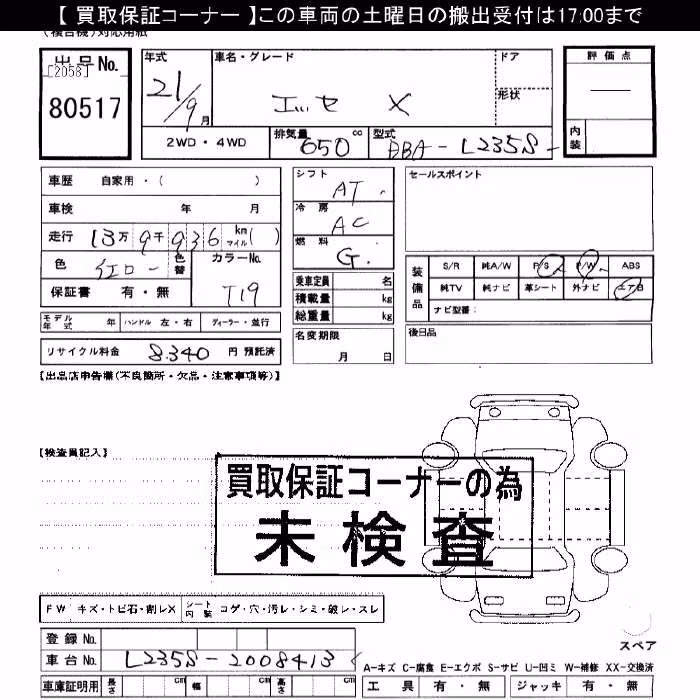 【 買取保証コーナー 】この車両の土曜日の搬出受付は17:00まで
出品No.
[2058]
80517
年式
21/9月
車名・グレード
エッセ X
ドア
形状
評価点
内装
2WD・4WD
排気量 650 cc
型式 DBA-L235S-
車歴 自家用・( )
車検 年 月
走行 13万9千936 km マイル( )
色 色替
カラーNo. T19
保証書 有・無
モデル年式 年 ハンドル 左・右 ディーラー・並行
リサイクル料金 8,340 円 預託済
シフト AT
冷房 AC
燃料 G.
乗車定員 名
積載量 kg
総重量 kg
名変期限
月 日
セールスポイント
装備品
S/R 純A/W P/S P/W ABS
純TV 純ナビ 革シート 外ナビ エアB
ナビ型番:
後日品
【出品店申告欄(不良箇所・欠品・注意事項等)】
【検査員記入】
買取保証コーナーの為
未検査
FW キズ・トビ石・割レX シート内装 コゲ・穴・汚レ・シミ・破レ・スレ
登録No.
車台No. L235S-2008413
スペア
A-キズ C-腐食 E-エクボ S-サビ U-凹ミ W-補修 XX-交換済
車庫証明用 長さ cm 幅 cm 高さ cm
工具 有・無 ジャッキ 有・無